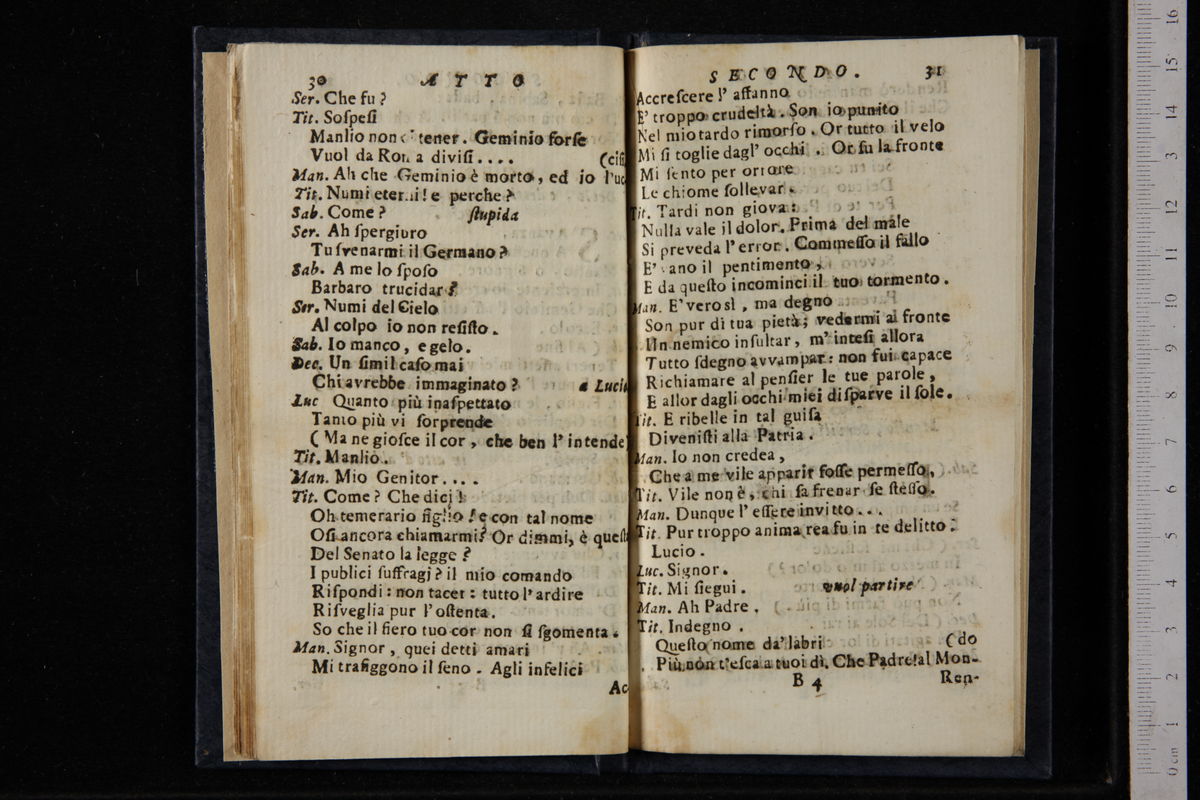 30 ATTO
Ser. Che fu ?
Tit. Soſpeſi
Manlio non tener. Geminio forſe
Vuol da Roma diviſi . . . .
(ciſi
Man. Ah che Geminio è morto, ed io l'uc
Tit. Numi eterni! e perche ?
Sab. Come ? ſtupida
Ser. Ah ſpergiuro
Tu ſvenarmi il Germano ?
Sab. A me lo ſpoſo
Barbaro trucidar ?
Ser. Numi del Cielo
Al colpo io non reſiſto.
Sab. Io manco, e gelo.
Dec. Un ſimil caſo mai
Chi avrebbe immaginato ? a Lucio
Luc Quanto più inaſpettato
Tanto più vi ſorprende
( Ma ne gioſce il cor, che ben l'intende)
Tit. Manlio.
Man. Mio Genitor. . . .
Tit. Come ? Che dici !
Oh temerario figlio ! e con tal nome
Oſi ancora chiamarmi? Or dimmi, è queſta
Del Senato la legge ?
I publici ſuffragj ? il mio comando
Riſpondi : non tacer : tutto l'ardire
Riſveglia pur l'oſtenta.
So che il fiero tuo cor non ſi ſgomenta.
Man. Signor, quei detti amari
Mi trafiggono il ſeno. Agli infelici
Ac
SECONDO. 31
Accreſcere l' affanno
E' troppo crudeltà. Son io punito
Nel mio tardo rimorſo. Or tutto il velo
Mi ſi toglie dagl' occhi . Or ſu la fronte
Mi ſento per orrore
Le chiome ſollevar.
Tit. Tardi non giova :
Nulla vale il dolor. Prima del male
Si preveda l'error. Commeſſo il fallo
E' vano il pentimento ,
E da queſto incominci il tuo tormento.
Man. E' vero sì , ma degno
Son pur di tua pietà; vedermi a fronte
Un nemico inſultar, m'inteſi allora
Tutto ſdegno avvampar: non fui capace
Richiamare al penſier le tue parole,
E allor dagli occhi miei diſparve il ſole.
Tit. E ribelle in tal guiſa
Diveniſti alla Patria.
Man. Io non credea,
Che a me vile apparir foſſe permeſſo.
Tit. Vile non è, chi ſa frenar ſe ſteſſo.
Man. Dunque l' eſſere invitto . . .
Tit. Pur troppo anima rea fu in te delitto.
Lucio.
Luc. Signor.
Tit. Mi ſiegui. vuol partire
Man. Ah Padre.
Tit. Indegno.
Queſto nome da' labri (do
Più non t'eſca a tuoi dì. Che Padre! al Mon-
B 4 Ren-